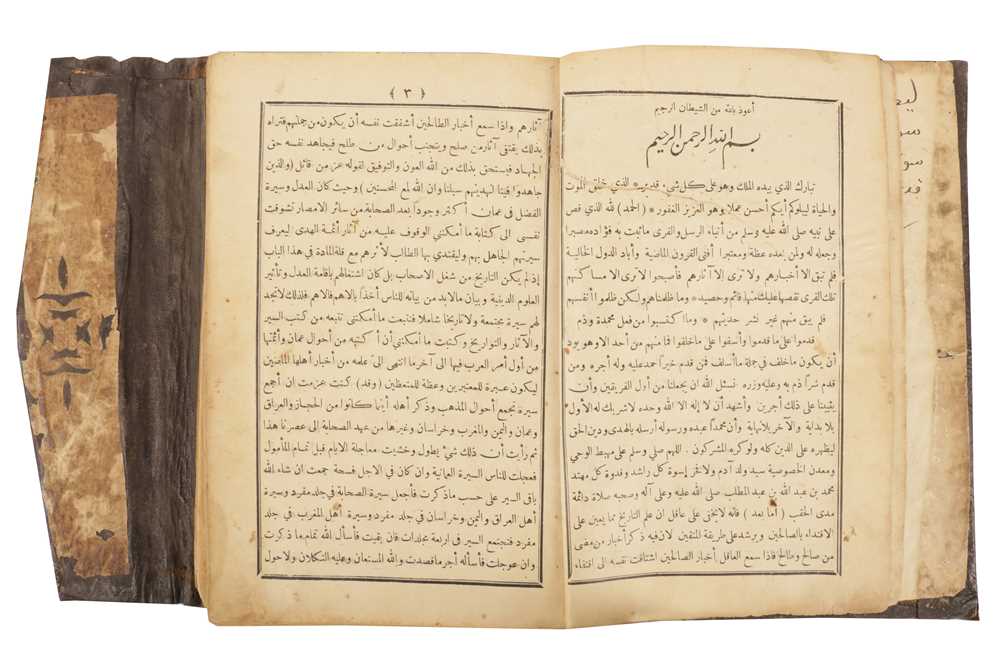 أعوذ بالله من الشيطان الرجيم
بسم الله الرحمن الرحيم
تبارك الذي بيده الملك وهو على كل شيء قدير * الذي خلق الموت
والحياة ليبلوكم أيكم أحسن عملا وهو العزيز الغفور * (الحمد) لله الذي قص
على نبيه صلى الله عليه وسلم من أنباء الرسل والقرى ما ثبت به فؤاده مصبرا
وجعله له ولمن بعده عظة ومعتبرا أفنى القرون الماضية وأباد الدول الخالية
فلم تبق الا أخبارهم ولا ترى إلا آثارهم فأصبحوا لا ترى الا مساكنهم
تلك القرى نقصها عليك منها قائم وحصيد * وما ظلمناهم ولكن ظلموا أنفسهم
فلم يبق منهم غير نشر حديثهم * وما اكتسبوا من فعل محمدة وذم
قدموا على ما قدموا وأسفوا على ما خلفوا فما منهم من أحد الا وهو يود
أن يكون ما خلف في جملة ما أسلف فمن قدم خيرا حمد عليه وله أجره ومن
قدم شرا ذم به وعليه وزره نسئل الله ان يجعلنا من أول الفريقين وأن
يثيبنا على ذلك أجرين وأشهد أن لا إله الا الله وحده لا شريك له الأول
بلا بداية والآخر بلا نهاية وأن محمدا عبده ورسوله أرسله بالهدى ودين الحق
ليظهره على الدين كله ولو كره المشركون اللهم صلي وسلم على مهبط الوحي
ومعدن الخصوصية سيد ولد ادم ولا فخر إسوة كل راشد وقدوة كل مهتد
محمد بن عبد الله بن عبد المطلب صلى الله عليه وعلى آله وصحبه صلاة دائمة
مدى الحقب (أما بعد) فانه لا يخفى على عاقل ان علم التاريخ مما يعين على
الاقتداء بالصالحين ويرشد على طريقة المتقين لان فيه ذكر أخبار من مضى
من صالح وطالح فاذا سمع العاقل أخبار الصالحين اشتاقت نفسه الى اقتفاء
﴿ ٣ ﴾
آثارهم واذا سمع أخبار الطالحين أشفقت نفسه أن يكون من جملتهم فتراه
بذلك يقتفى آثار من صلح ويتجنب أحوال من طلح فيجاهد نفسه حق
الجهاد فيستحق بذلك من الله العون والتوفيق لقوله عز من قائل (والذين
جاهدوا فينا لنهدينهم سبلنا وان الله لمع المحسنين) وحيث كان العدل وسيرة
الفضل في عمان أكثر وجودا بعد الصحابة من سائر الامصار تشوقت
نفسي الى كتابة ما أمكنني الوقوف عليه من آثار أئمة الهدى ليعرف
سيرتهم الجاهل بهم وليقتدي بها الطالب لأثرهم مع قلة المادة في هذا الباب
إذ لم يكن التاريخ من شغل الاصحاب بل كان اشتغالهم بإقامة العدل وتأثير
العلوم الدينية وبيان ما لا بد من بيانه للناس أخذا بالاهم فالاهم فلذلك لا تجد
لهم سيرة مجتمعة ولا تاريخا شاملا فتتبعت ما أمكنني تتبعه من كتب السير
والآثار والتواريخ وكتبت ما أمكنني أن أكتبه من أحوال عمان وأئمتها
من أول أمر العرب فيها الى آخر ما انتهى الى علمه من أخبار أهلها الماضين
ليكون عبرة للمعتبرين وعظة للمتعظين (وقد) كنت عزمت ان أجمع
سيرة تجمع أحوال المذهب وذكر أهله أينما كانوا من الحجاز والعراق
وعمان واليمن والمغرب وخراسان وغيرها من عهد الصحابة إلى عصرنا هذا
ثم رأيت أن ذلك شيء يطول وخشيت معاجلة الايام قبل تمام المأمول
فعجلت للناس السيرة العمانية وان كان في الاجل فسحة جمعت ان شاء الله
باقى السير على حسب ما ذكرت فأجعل سيرة الصحابة في جلد مفرد وسيرة
أهل العراق واليمن وخراسان في جلد مفرد وسيرة أهل المغرب في جلد
مفرد فتجتمع السير في اربعة مجلدات فان بقيت فأسأل الله تمام ما ذكرت
وان عوجلت فأسأله أجر ما قصدت والله المستعان وعليه التكلان ولا حول